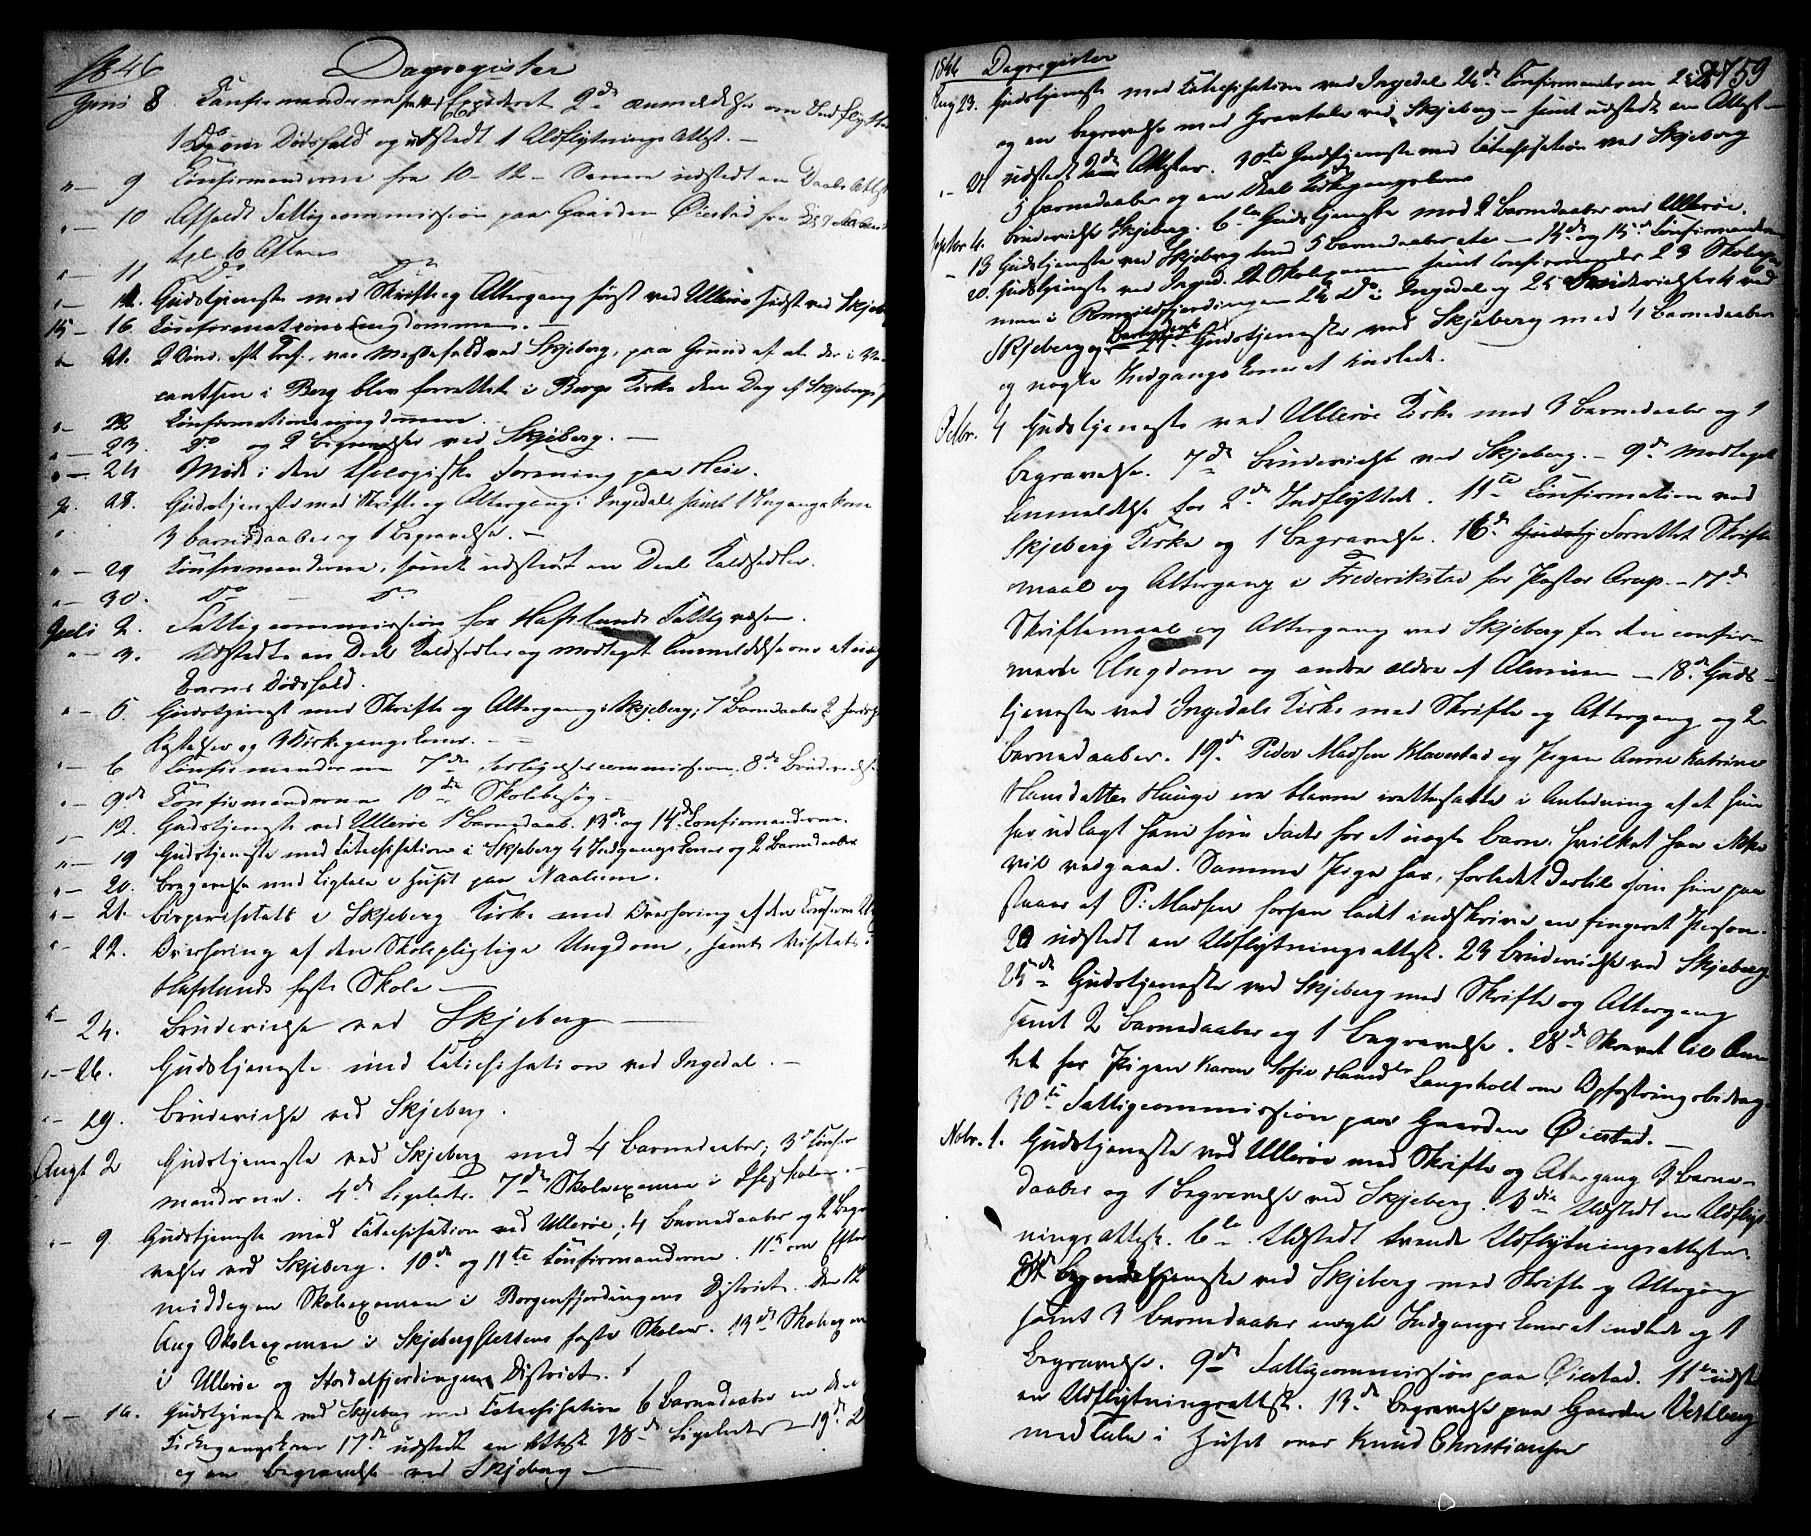 1846 Dagregister
Juni 8. Confirmanderne samt Expederet 2de anmeldelser om Indflyttede
1 Do om Dødsfald og udstedt 1 Udflytnings Attest. —
"— 9 Confirmanderne fra 10-12 — Senere udstedt en Daabs Attest
"— 10 Afholdt Fattigcommission paa Gaarden Øiestad fra
Kl. 10 Aften
"— 11 Do Do
"— 12. Gudstjeneste med Skrift og Altergang først ved Ullerøe sidst ved Skjeberg
15 — 16. Confirmationsungdommen. —
"— 21. 2 Sønd. eft. Tref. var Messefald ved Skjeberg, paa Grund af at der i Va-
cantsen i Berg blev forrettet i Bergs Kirke den Dag af Skjebergs
"— 22 Confirmationsungdommen.
"— 23. Do og 2 Begravelser ved Skjeberg. —
"— 24 Møde i den theologiske Forening paa Heie.
28. Gudstjeneste med Skrift og Altergang i Ingedal samt 1 Ingangskone
3 barnedaaber og 1 begravelse. —
"— 29 Confirmanderne, samt udstedt en Deel Kaldsedler.
"— 30. Do — Do
Juli 2. Fattigcommission for Hafslunds Fattigvæsen.
"— 3. Udstedte en Deel Kaldsedler og modtaget Anmeldelse om et
Barns Dødsfald.
"— 5. Gudstjenest med Skrifte og Altergang i Skjeberg; 7 Barnedaaber 2
og 3 Kirkegangskoner. —
"— 6 Confirmanderne 7de forligelsescommission, 8de Brudevielse
"— 9de Confirmanderne 10de Skolebesøg —
"— 12. Gudstjeneste ved Ullerøe 1 Barnedaab. 13de og 14de Confirmanderne.
"— 19 Gudstjeneste med Catechisation i Skjeberg 4 Indgangs Koner og 2 Barnedaaber
"— 20. Begravelse med Ligtale i Huset paa Naalum.
"— 21. Bispevisitats i Skjeberg Kirke med Overhøring af den Confirm.
"— 22. Overhøring af den Skolepligtige Ungdom, samt Visitats i
Hafslunds faste Skole —
"— 24. Brudevielse ved Skjeberg —
"— 26. Gudstjeneste med Catechisation ved Ingedal. —
"— 29. Brudevielse ved Skjeberg.
Augt 2 Gudstjeneste ved Skjeberg med 4 Barnedaaber; 3de Confir
manderne. 4de Ligeledes. 7de Skoleexamen i
"— 9. Gudstjeneste med Catechisation ved Ullerøe; 4 Barnedaaber og 2 Begra
velser ved Skjeberg. 10de og 11te Confirmanderne. 11te om Efter
middagen Skoleexamen i Borgenfjerdingens District. Den 12
Aug Skoleexamen i Skjebergslettens faste Skoler. 13de Skoleexamen
i Ullerøe og Hordalfjerdingens District.
"— 16. Gudstjeneste ved Skjeberg med Catechisation 6 Barnedaaber en Deel
Kirkegangskoner 17de udstedt en Attest 18de Ligeledes — 19de 2
og en begravelse ved Skjeberg —
1846 Dagregister 759
Aug 23. Gudstjeneste med Catechisation ved Ingedal 24de Confirmanderne
og en begravelse med Gravtale ved Skjeberg — samt udstedt en Attest —
udstedt 2de Attester. 30te Gudstjeneste med Catechisation ved Skjeberg
5 barnedaaber og en Deel Kirkegangskoner
Septbr 4. Brudevielse Skjeberg. 6te Gudstjeneste med 2 Barnedaaber ved Ullerøe.
— 13 Gudstjeneste ved Skjeberg med 5 Barnedaaber — 14de og 15de Confirmanderne
20. Gudstjeneste ved Ingedal. 21 Skoleexamen samt Confirmander 23 Skoleexa-
men i fjerdingen 24 Do i Ingedal og 25 Brudevielser 4 ved
Skjeberg 27. Gudstjeneste ved Skjeberg med 4 Barnedaaber
og nogle Indgangs Koner at indlede.
Octbr. 4 Gudstjeneste ved Ullerøe Kirke med 3 barnedaaber og 1
begravelse. 7de brudevielse ved Skjeberg. — 9de modtaget
Anmeldelse for 2de Indflyttede. 11te Confirmation ved
Skjeberg Kirke og 1 begravelse. 16de Forrettet Skrifte
maal og Altergang i Frederikstad for Pastor Arup. — 17de
Skriftemaal og Altergang ved Skjeberg for den confir-
merte Ungdom og andre ældre af Almuen — 18de Guds-
tjeneste ved Ingedals Kirke med Skrifte og Altergang og 2
barnedaaber. 19de Peder Madsen Klavestad og Pigen Anne Katrine
Hansdatter Hauge ere blevne irettesatte i Anledning af at hun
har udlagt ham som Fader for et uægte barn, hvilket han ikke
vil vedgaae. Samme Pige har, forledet dertil som hun paa
staaer af P: Madsen forhen ladet indskrive en fingeret Person.
20 udstedt en Udflytningsattest. 23 brudevielse ved Skjeberg.
25de Gudstjeneste ved Skjeberg med Skrifte og Altergang
samt 2 barnedaaber og 1 Begravelse. 28de Skrevet til Am
tet for Pigen Karen Sofie Hansdtr Langsholt om Opfostringsbidrag.
30te Fattigcommission paa Gaarden Øiestad. —
Novbr. 1. Gudstjeneste ved Ullerøe med Skrifte og Altergang 3 Barne-
daaber og 1 begravelse ved Skjeberg. 3die Udstedt en Udflyt
ningsattest. 6te Udstedt trende Udflytningsattester.
8de Gudstjeneste ved Skjeberg med Skrifte og Altergang
samt 3 barnedaaber nogle Indgangskoner at indlede og 1
begravelse. 9de Fattigcommission paa Øiestad. 11te udstedt
en Udflytningsattest. 13de begravelse paa Gaarden Vestberg
med tale i Huset over Knud Christiansen